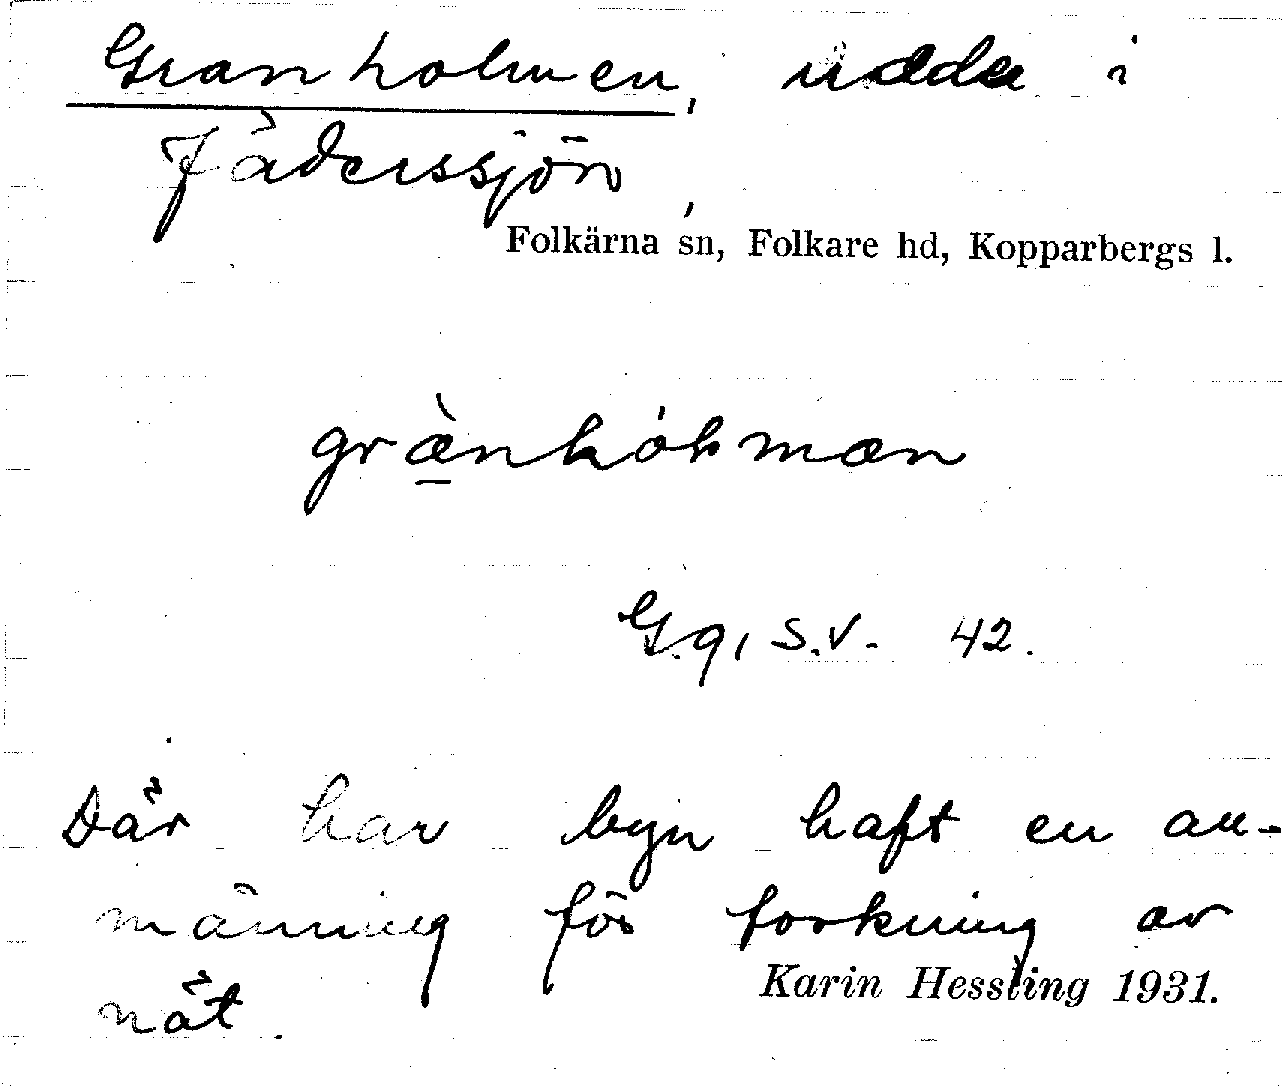 Granholmen, udde i
Jäderssjön,
Folkärna sn, Folkare hd, Kopparbergs l.
grànhòlmæn
G.q, S.V. 42.
Där har byn haft en all-
männing för torkning av
nät.
Karin Hessling 1931.